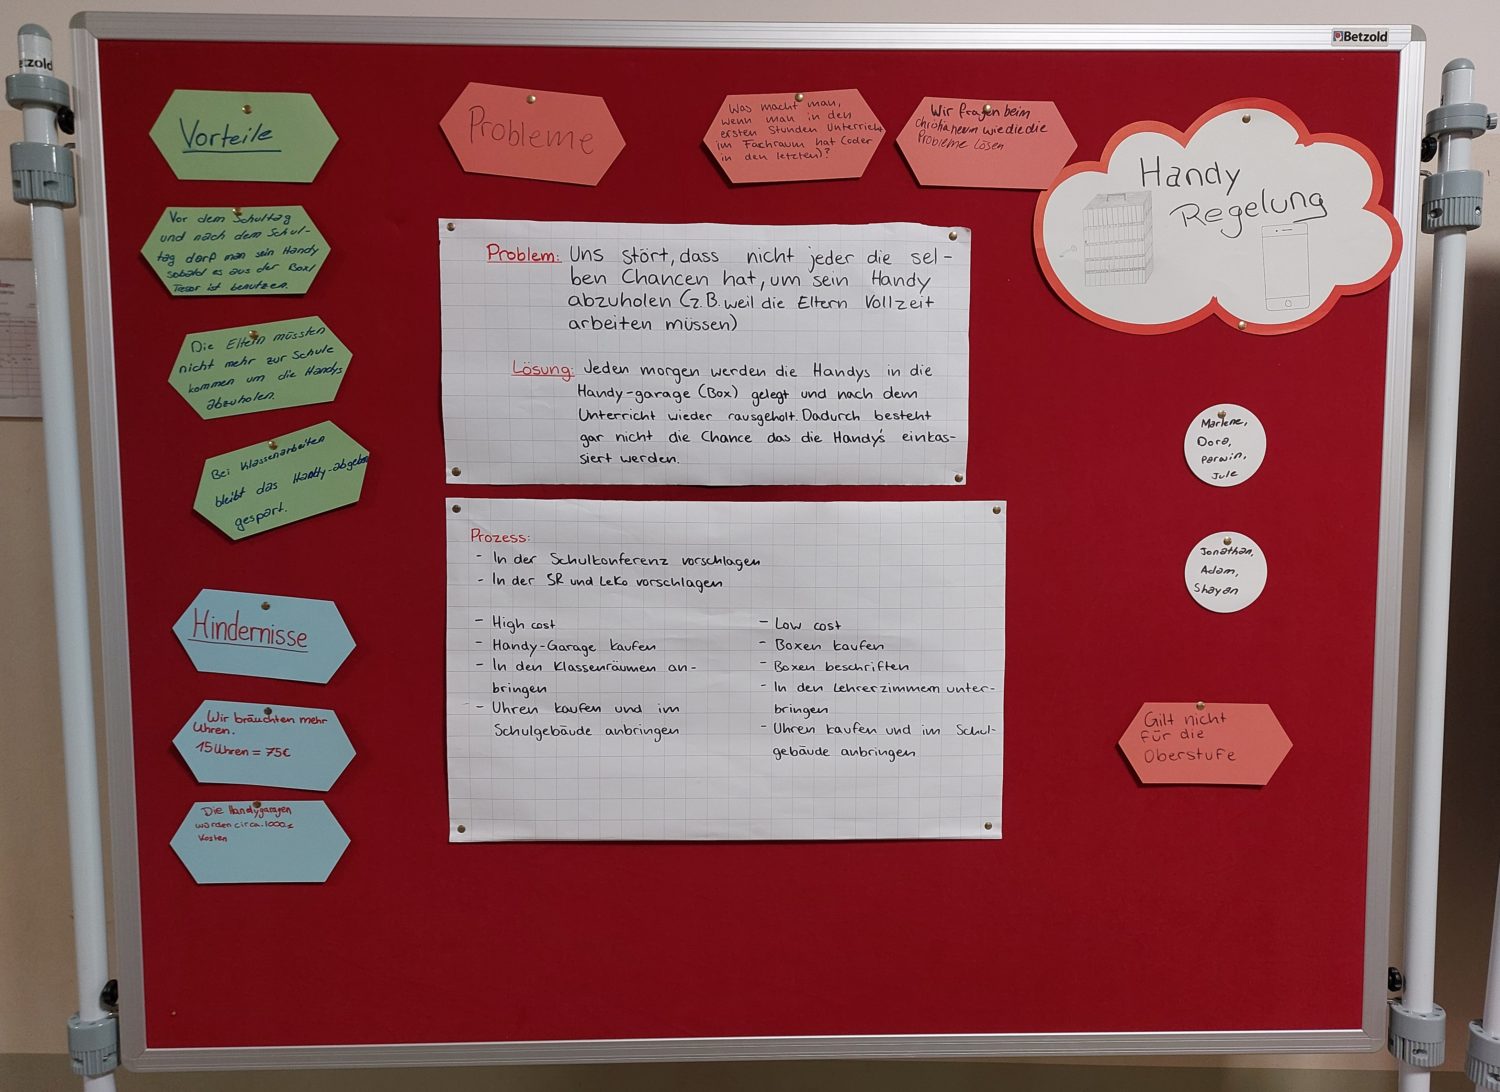 Betzold
etzold
Vorteile
Vor dem Schultag
und nach dem Schul-
tag darf man sein Handy
sobald es aus der Box/
Tresor ist benutzen.
Die Eltern müssten
nicht mehr zur Schule
kommen um die Handys
abzuholen.
Bei Klassenarbeiten
bleibt das Handy-abgeben
gespart.
Hindernisse
Wir bräuchten mehr
Uhren.
15 Uhren = 75€
Die Handygaragen
würden circa. 1000€
kosten
Probleme
Was macht man,
wenn man in den
ersten Stunden Unterricht
im Fachraum hat (oder
in den letzten)?
Wir fragen beim
christianeum wie die die
Probleme Lösen
Problem: Uns stört, dass nicht jeder die sel-
ben Chancen hat, um sein Handy
abzuholen (z.B. weil die Eltern Vollzeit
arbeiten müssen)
Lösung: Jeden morgen werden die Handys in die
Handy-garage (Box) gelegt und nach dem
Unterricht wieder rausgeholt. Dadurch besteht
gar nicht die Chance das die Handy's einkas-
siert werden.
Prozess:
- In der Schulkonferenz vorschlagen
- In der SR und LeKo vorschlagen
- High cost
- Handy-Garage kaufen
- In den Klassenräumen an-
bringen
- Uhren kaufen und im
Schulgebäude anbringen
- Low cost
- Boxen kaufen
- Boxen beschriften
- In den Lehrerzimmern unter-
bringen
- Uhren kaufen und im Schul-
gebäude anbringen
Handy
Regelung
Marlene,
Dora,
Parwin,
Jule
Jonathan,
Adam,
Shayan
Gilt nicht
für die
Oberstufe